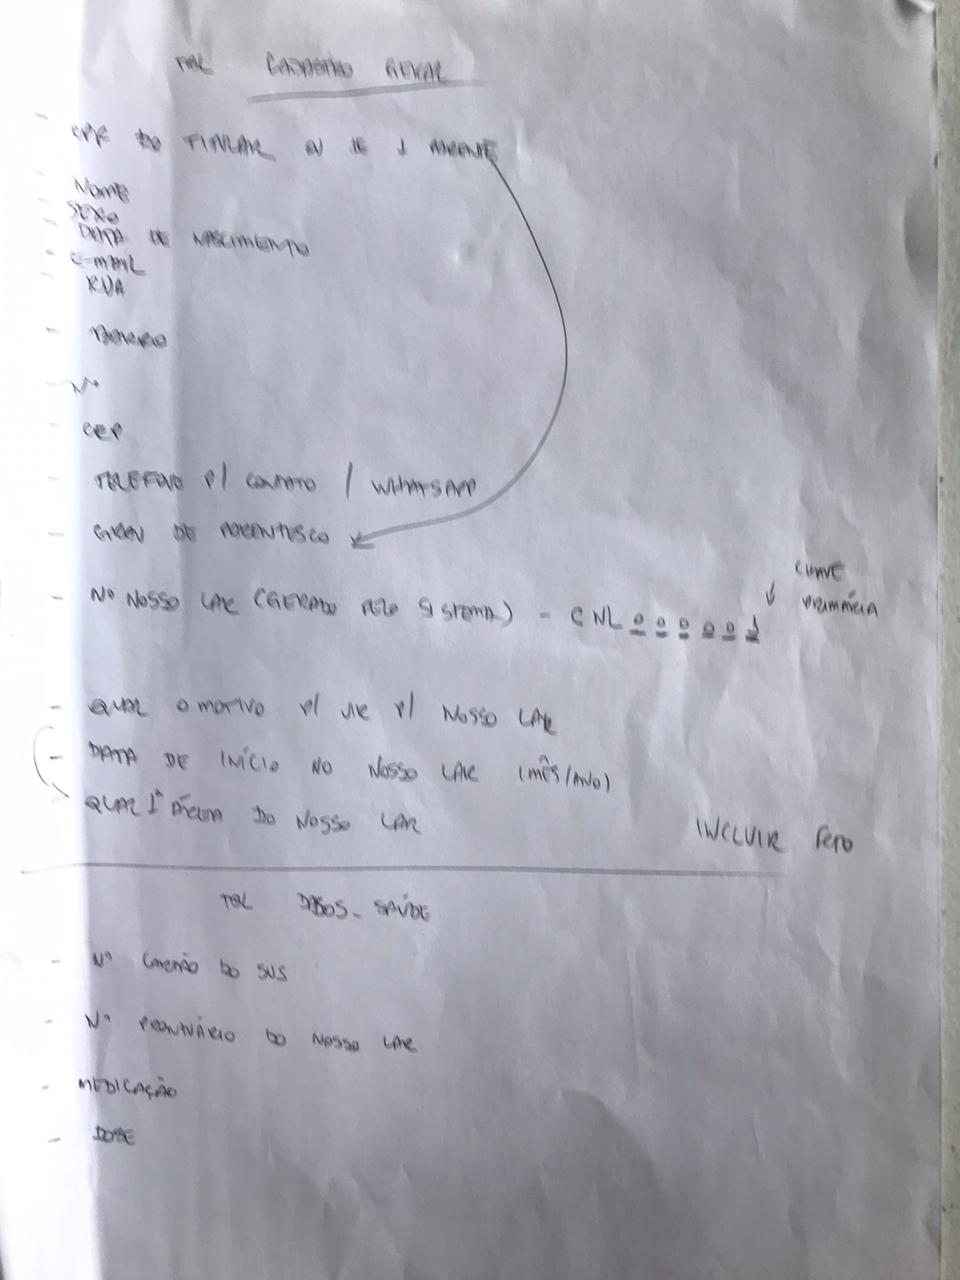 TBL CADASTRO GERAL
- CPF DO TITULAR OU DE 1 PARENTE
- NOME
- SEXO
- DATA DE NASCIMENTO
- E-MAIL
- RUA
- BAIRRO
- Nº
- CEP
- TELEFONE P/ CONTATO / WHATSAPP
- GRAU DE PARENTESCO
CHAVE
PRIMÁRIA
- Nº NOSSO LAR (GERADO PELO SISTEMA) - CNL 000001
- QUAL O MOTIVO P/ VIR P/ NOSSO LAR
- DATA DE INÍCIO NO NOSSO LAR (MÊS/ANO)
QUAL 1ª DO NOSSO LAR
INCLUIR FOTO
TBL DADOS_SAÚDE
- Nº CARTÃO DO SUS
- Nº PRONTUÁRIO DO NOSSO LAR
- MEDICAÇÃO
- DOSE